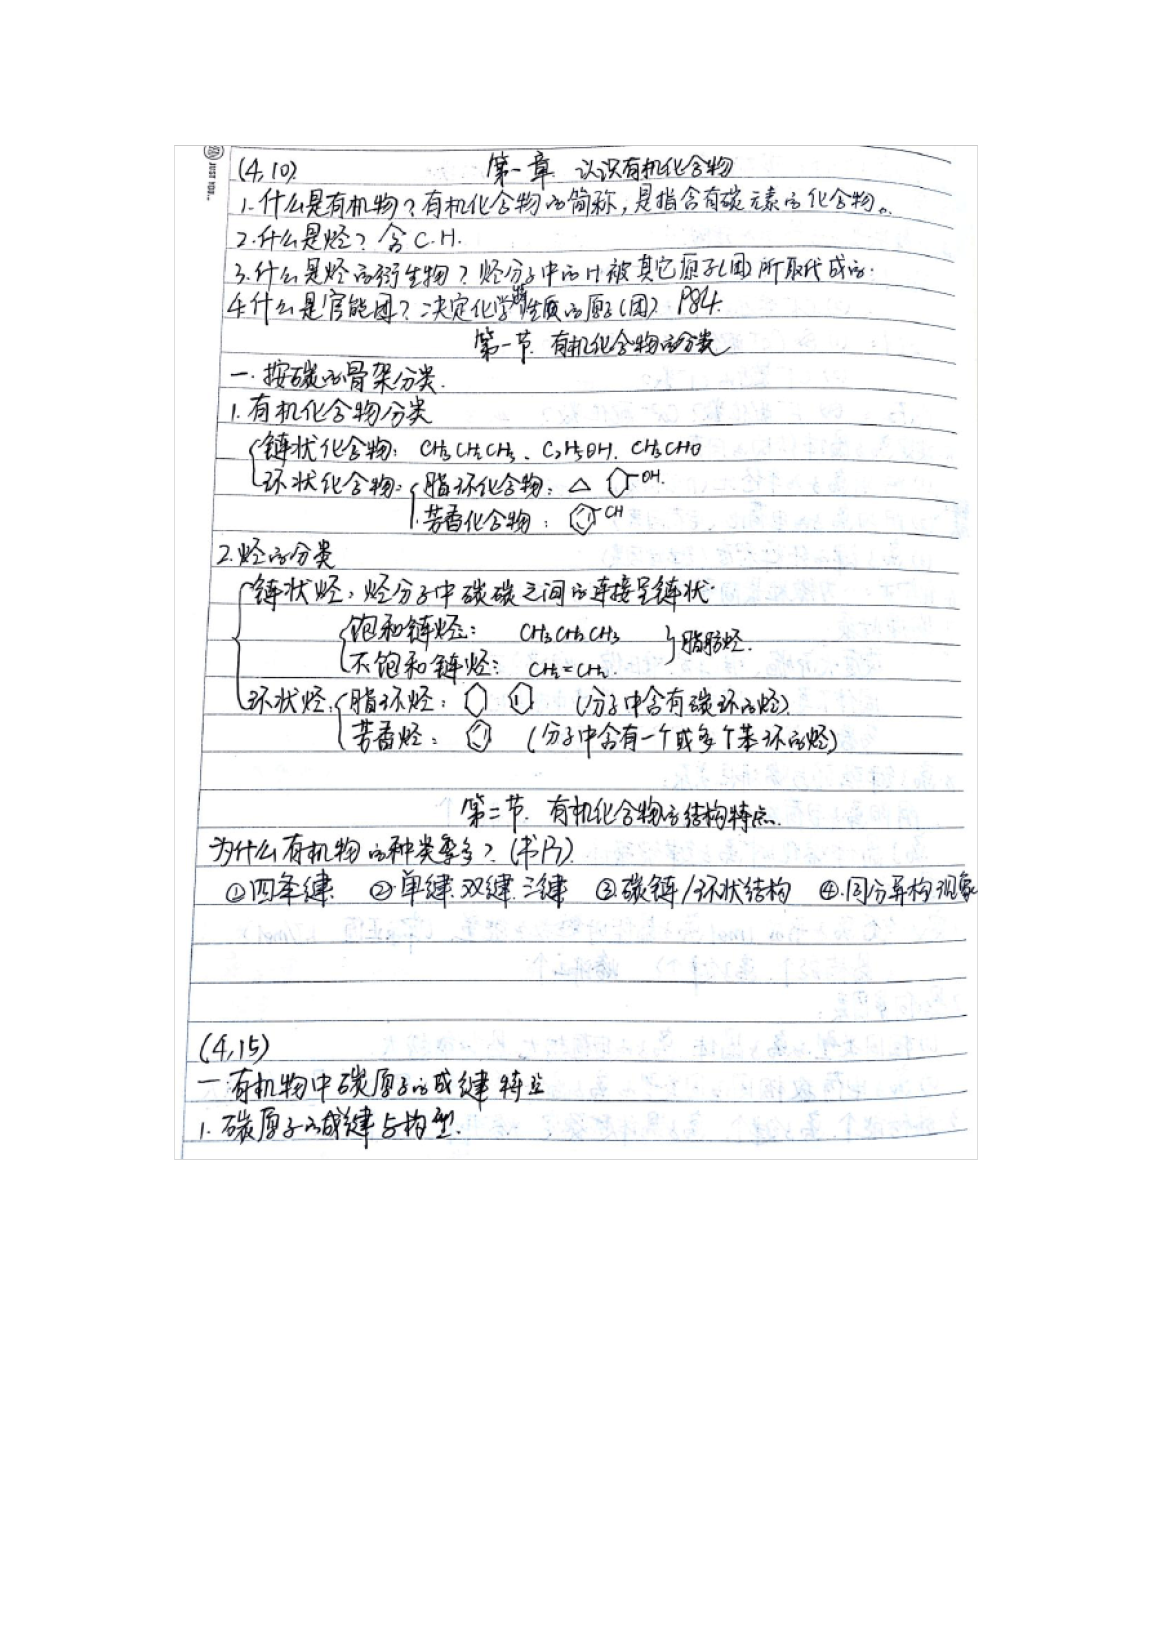 JUST YOU..
(4,10) 第一章 认识有机化合物
1.什么是有机物?有机化合物的简称,是指含有碳元素的化合物。
2.什么是烃?含C.H.
3.什么是烃的衍生物?烃分子中的H被其它原子(团)所取代成的.
4.什么是官能团?决定化学特性质的原子(团) P84.
第一节.有机化合物的分类
一.按碳的骨架分类.
1.有机化合物分类
链状化合物: CH₃CH₂CH₃、C₂H₅OH、CH₃CHO
环状化合物: 脂环化合物: OH.
芳香化合物: CH
2.烃的分类
链状烃:烃分子中碳碳之间的连接呈链状.
饱和链烃: CH₃CH₂CH₃
不饱和链烃: CH₂=CH₂. 脂肪烃.
环状烃: 脂环烃: (分子中含有碳环的烃).
芳香烃: (分子中含有一个或多个苯环的烃)
第二节.有机化合物的结构特点.
为什么有机物的种类繁多?(书P₇)
①四条键. ②单键.双键.三键 ③碳链/环状结构 ④.同分异构现象
(4,15)
一.有机物中碳原子的成键特点
1.碳原子的成键与构型.